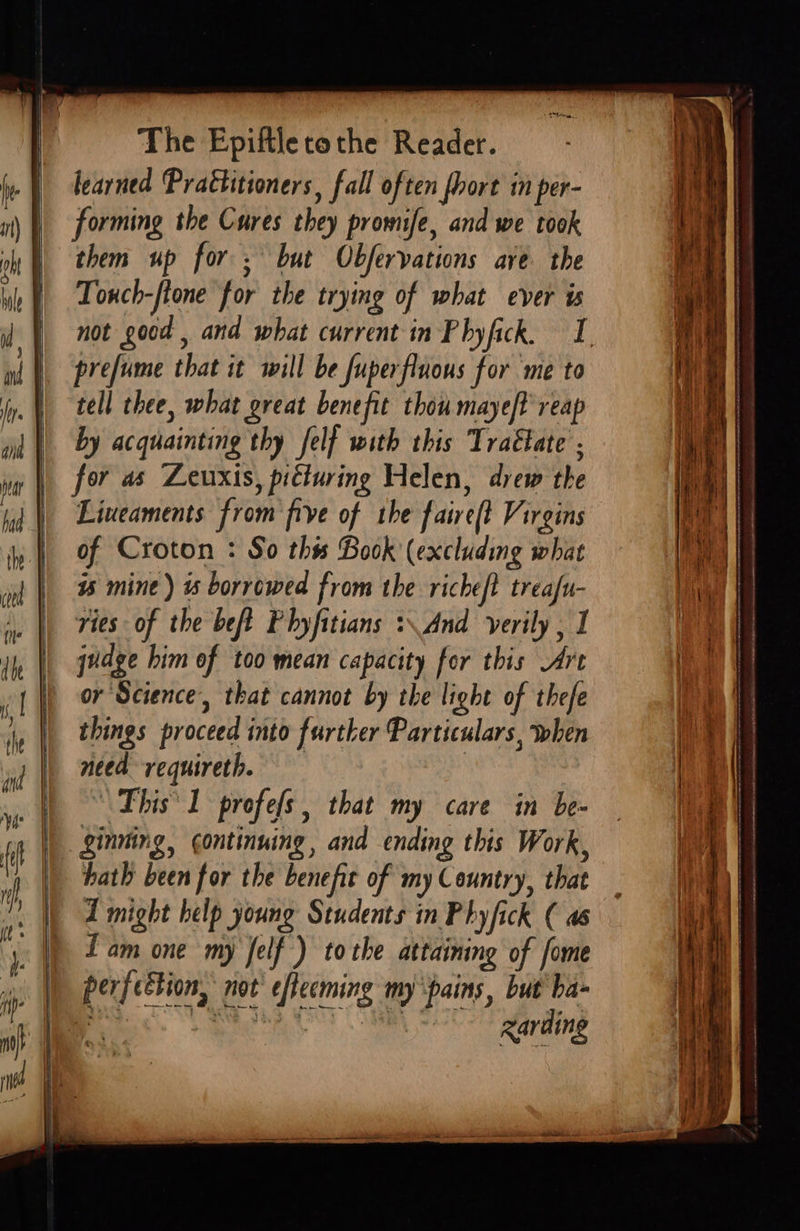 The Epiſtle to the Reader.
learned Practitioners, fall often ſhort in per-
forming the Cures they promiſe, and we took
them up for ; but Obſervations are the
Touch-ſtone for the trying of what ever is
not good, and what current in Phyſick. I
preſume that it will be ſuperfluous for me to
tell thee, what great benefit thou mayeſt reap
by acquainting thy ſelf with this Tractate ;
for as Zeuxis, picturing Helen, drew the
Liueaments from five of the faireſt Virgins
of Croton : So this Book (excluding what
is mine) is borrowed from the richeſt treaſu-
ries of the beſt Phyſitians : And verily, I
judge him of too mean capacity for this Art
or Science, that cannot by the light of theſe
things proceed into further Particulars, when
need requireth.
This I profeſs, that my care in be-
ginning, continuing, and ending this Work,
hath been for the benefit of my Country, that
I might help young Students in Phyſick ( as
I am one my ſelf ) to the attaining of ſome
perfection, not eſteeming my pains, but ha-
zarding